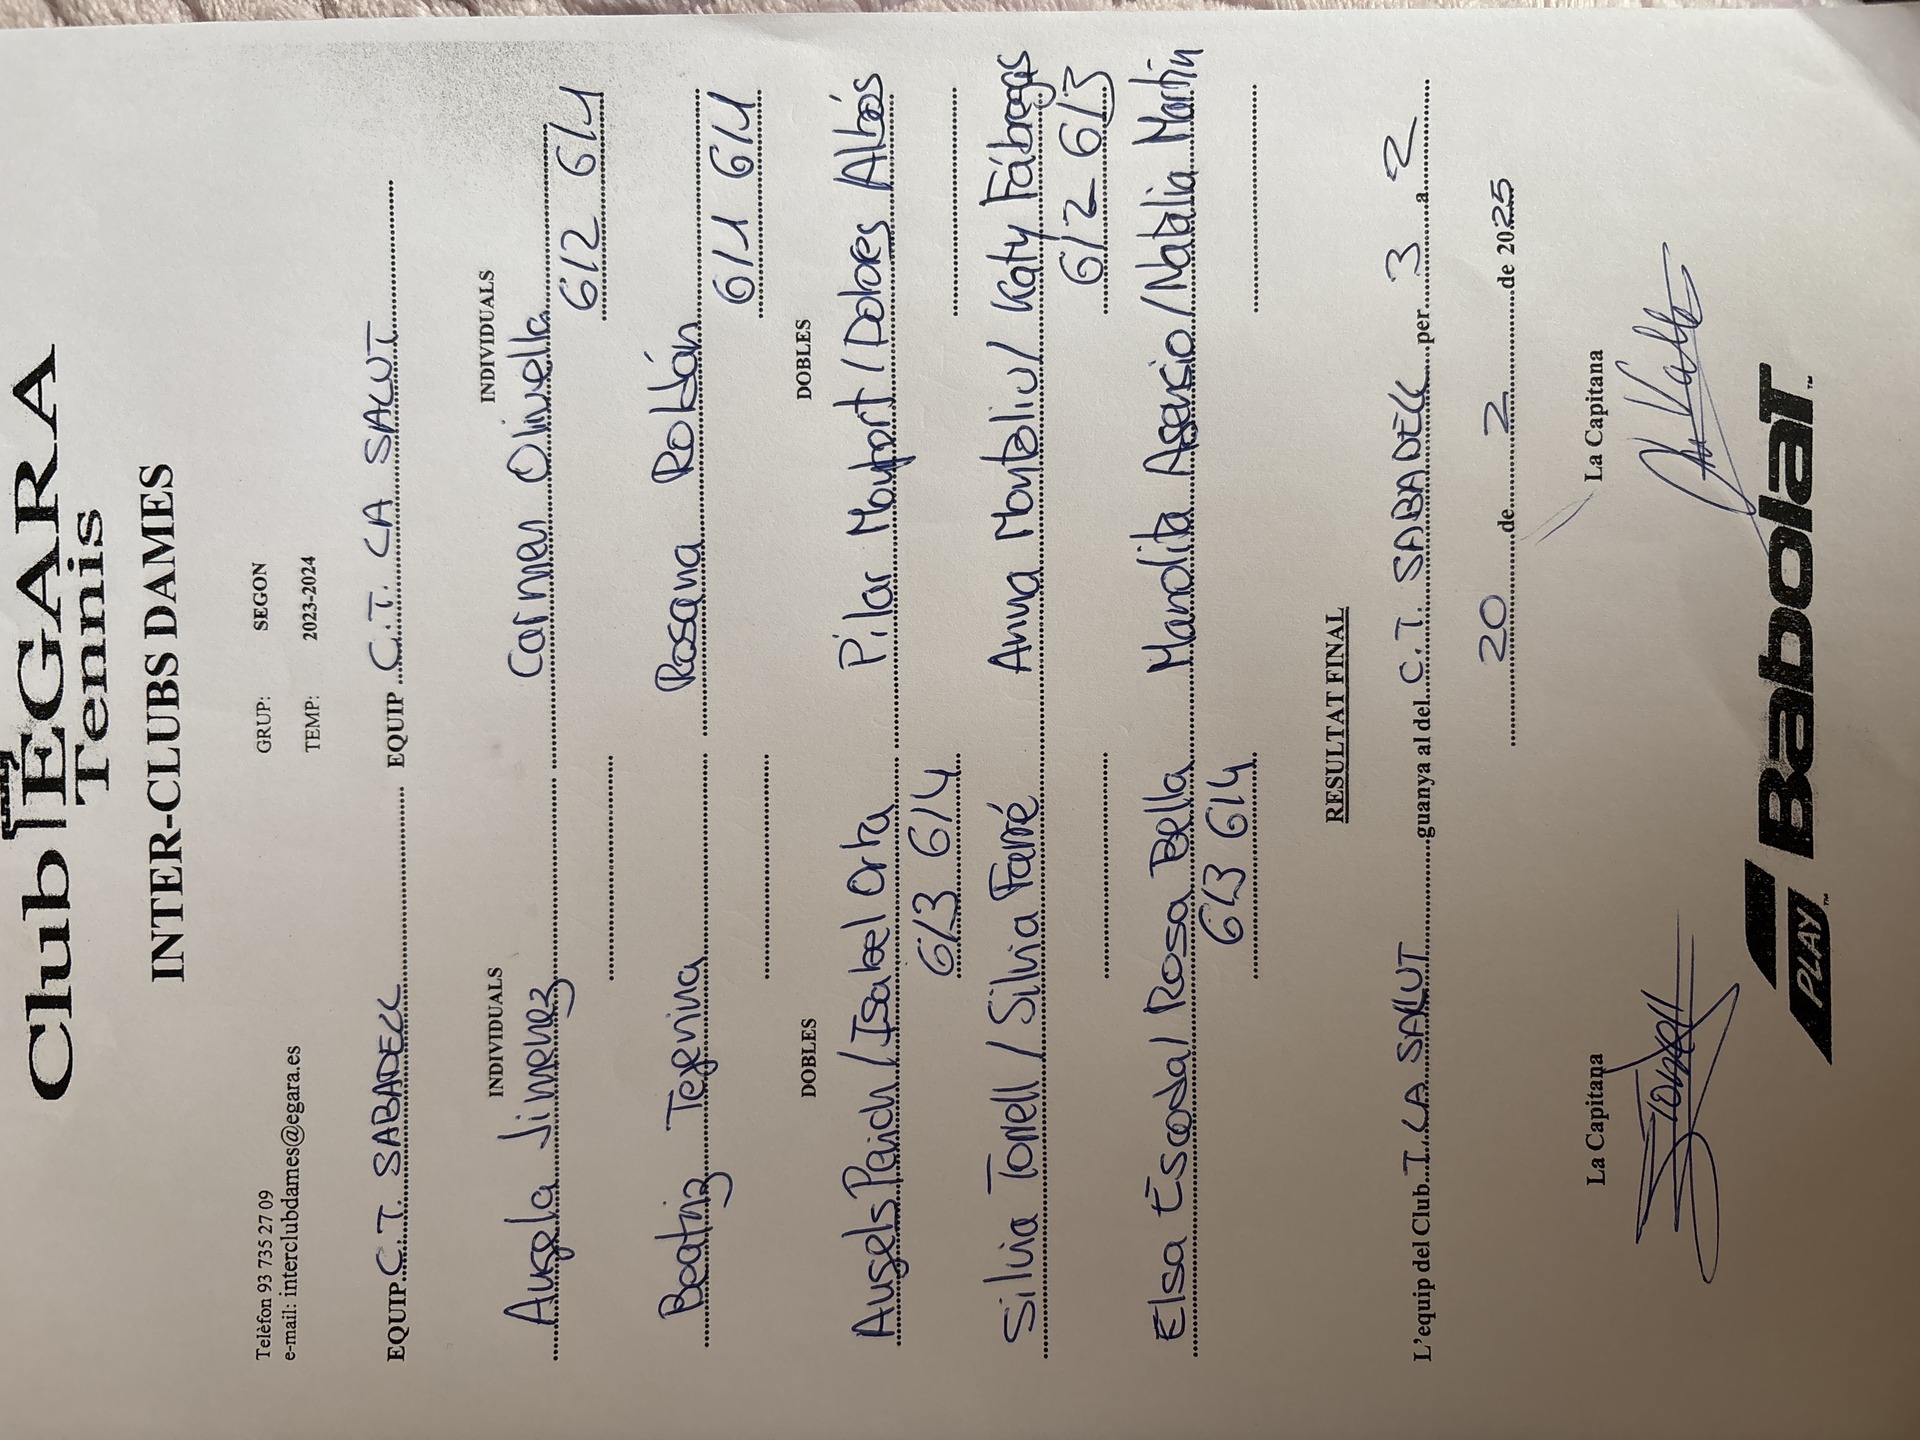 Club EGARA
Tennis
INTER-CLUBS DAMES
Telèfon 93 735 27 09 GRUP: SEGON
e-mail: interclubdames@egara.es TEMP: 2023-2024
EQUIP C.T. SABADELL EQUIP C.T. LA SALUT
INDIVIDUALS INDIVIDUALS
Angela Jimenez Carmen Olivella
6/2 6/1
Beatriz Rosana Roldán
6/1 6/1
DOBLES DOBLES
Angels Paich / Isabel Orta Pilar / Dolores Albós
6/3 6/4
Silvia Torrell / Silvia Farré Anna Montaliu / Katy Fábregas
6/2 6/3
Elsa Escoda / Rosa Bella Mandita Asensio / Natalia Martin
6/3 6/4
RESULTAT FINAL
L'equip del Club T. LA SALUT guanya al del C.T. SABADELL per 3 a 2
20 de 2 de 2025
La Capitana La Capitana
PLAY™ BabolaT™